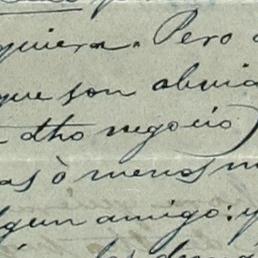 quiera. Pero
que son obvia
dho negocio
as ò menos m
lgun amigo: y